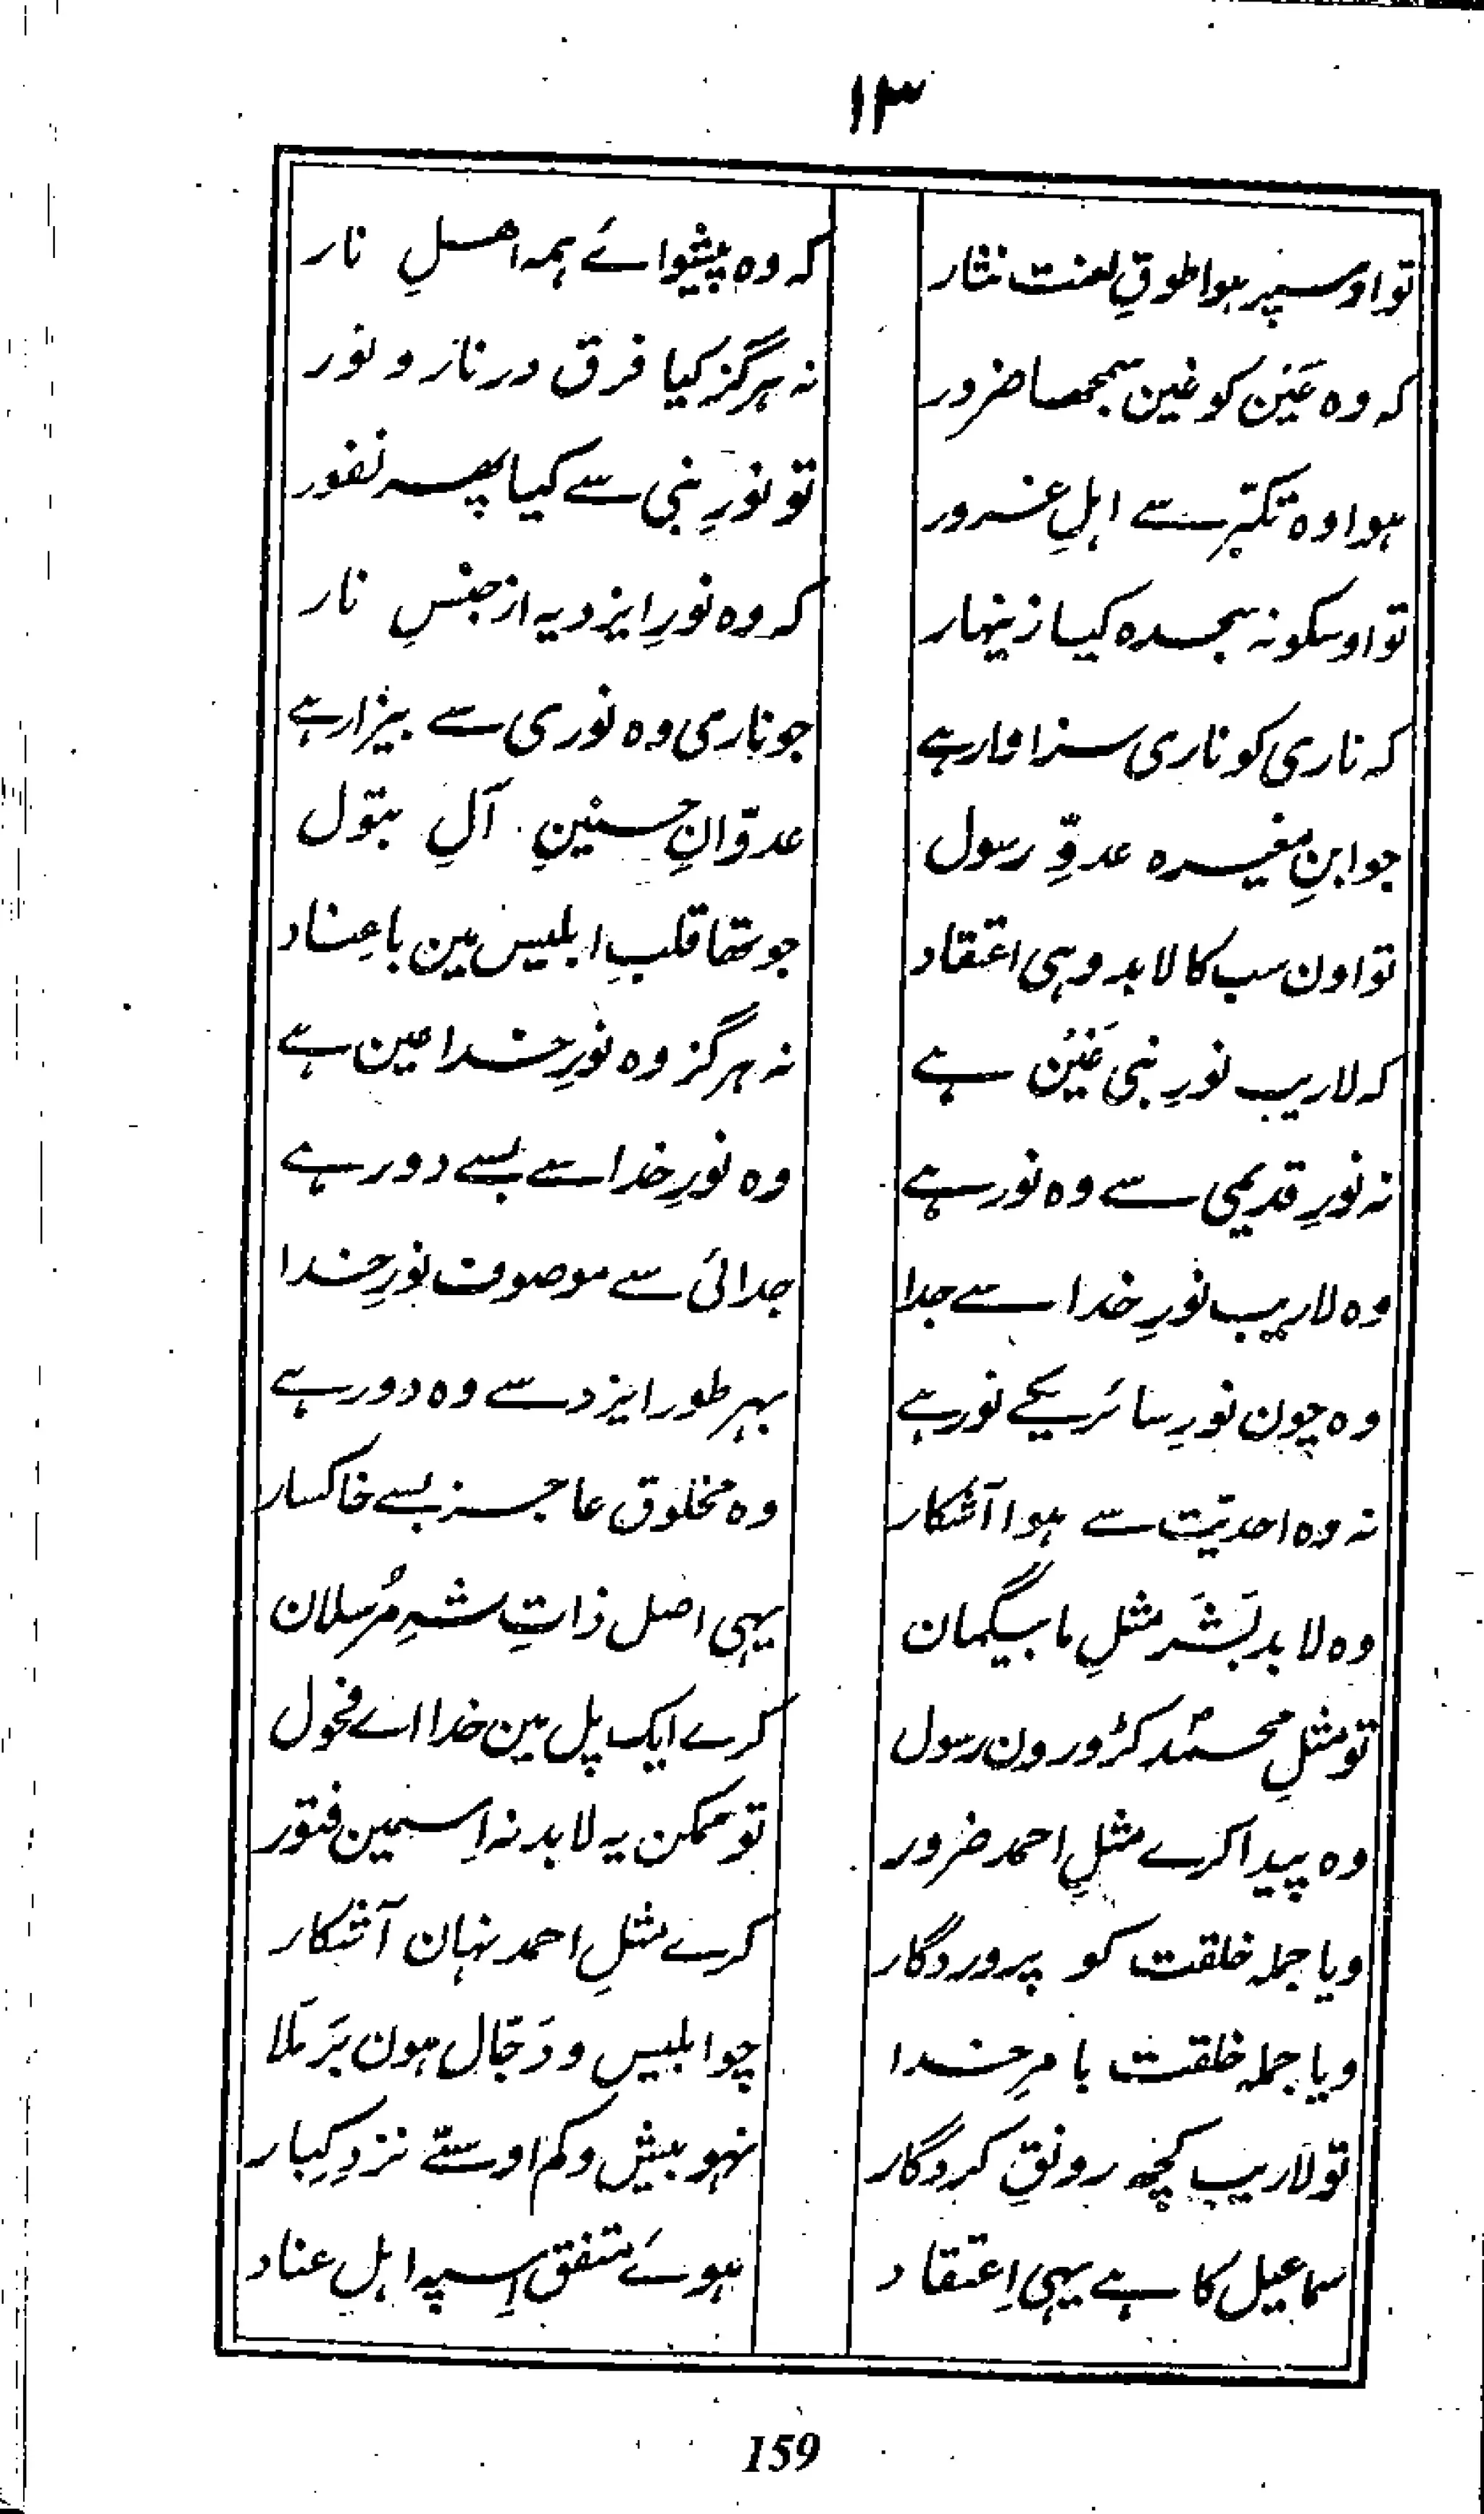 ۱۳
تو اوسپر ہوا طوقِ لعنت نثار کہ وہ پیشوائے ہمہ اھلِ نار
کہ وہ عَین کو غین سمجھا ضرور نہ ہرگز کیا فرق در نار و نور
ہوا وہ تکبّر سے اہلِ غرور تو نورِ نبی سے کیا پھر نفور
تو اوسکو نہ سجدہ کیا زینہار کہ وہ نورِ ایزد یہ از جنسِ نار
کہ ناری کو ناری سزاوار ہے جو ناری وہ نوری سے بیزار ہے
جو ابنِ مغیرہ عدوِّ رسول عدوّانِ حسنینِ آلِ بتول
تو اون سب کا لابد وہی اعتقاد جو تھا قلبِ ابلیس مین با عناد
کہ لاریب نورِ نبی غَیْن ہے نہ ہرگز وہ نورِ خدا عین ہے
نہ نورِ قدیمی سے وہ نور ہے وہ نورِ خدا سے بسے دور ہے
وہ لاریب نورِ خدا سے جدا جدائی سے موصوف نورِ خدا
وہ چون نورِ سائر یکے نور ہے بہر طور ایزد سے وہ دور ہے
نہ وہ احدیّت سے ہوا آشکار وہ مخلوق عاجز بسے خاکسار
وہ لابد بَشَر مثلِ ما بیگمان یہی اصل ذاتِ شہِ مُرسلان
تو مثلِ محمدؐ کڑورون رسول کرے ایک پل مین خدا اے فحول
وہ پیدا کرے مثلِ احمد ضرور تو ممکن یہ لابد نہ اِسمین فتور
ویا جملہ خلقت کو پروردگار کرے مثلِ احمد نہان آشکار
ویا جملہ خلقت بامرِ خدا چو ابلیس و دَجّال ہون بَرمَلا
تو لاریب کچھ رونقِ کردگار نہو بیش و کم اوستے نزدِ کِبار
سماعیل کا ہے یہی اِعتقاد ہوئے متفق اِسپہ اہلِ عناد
159